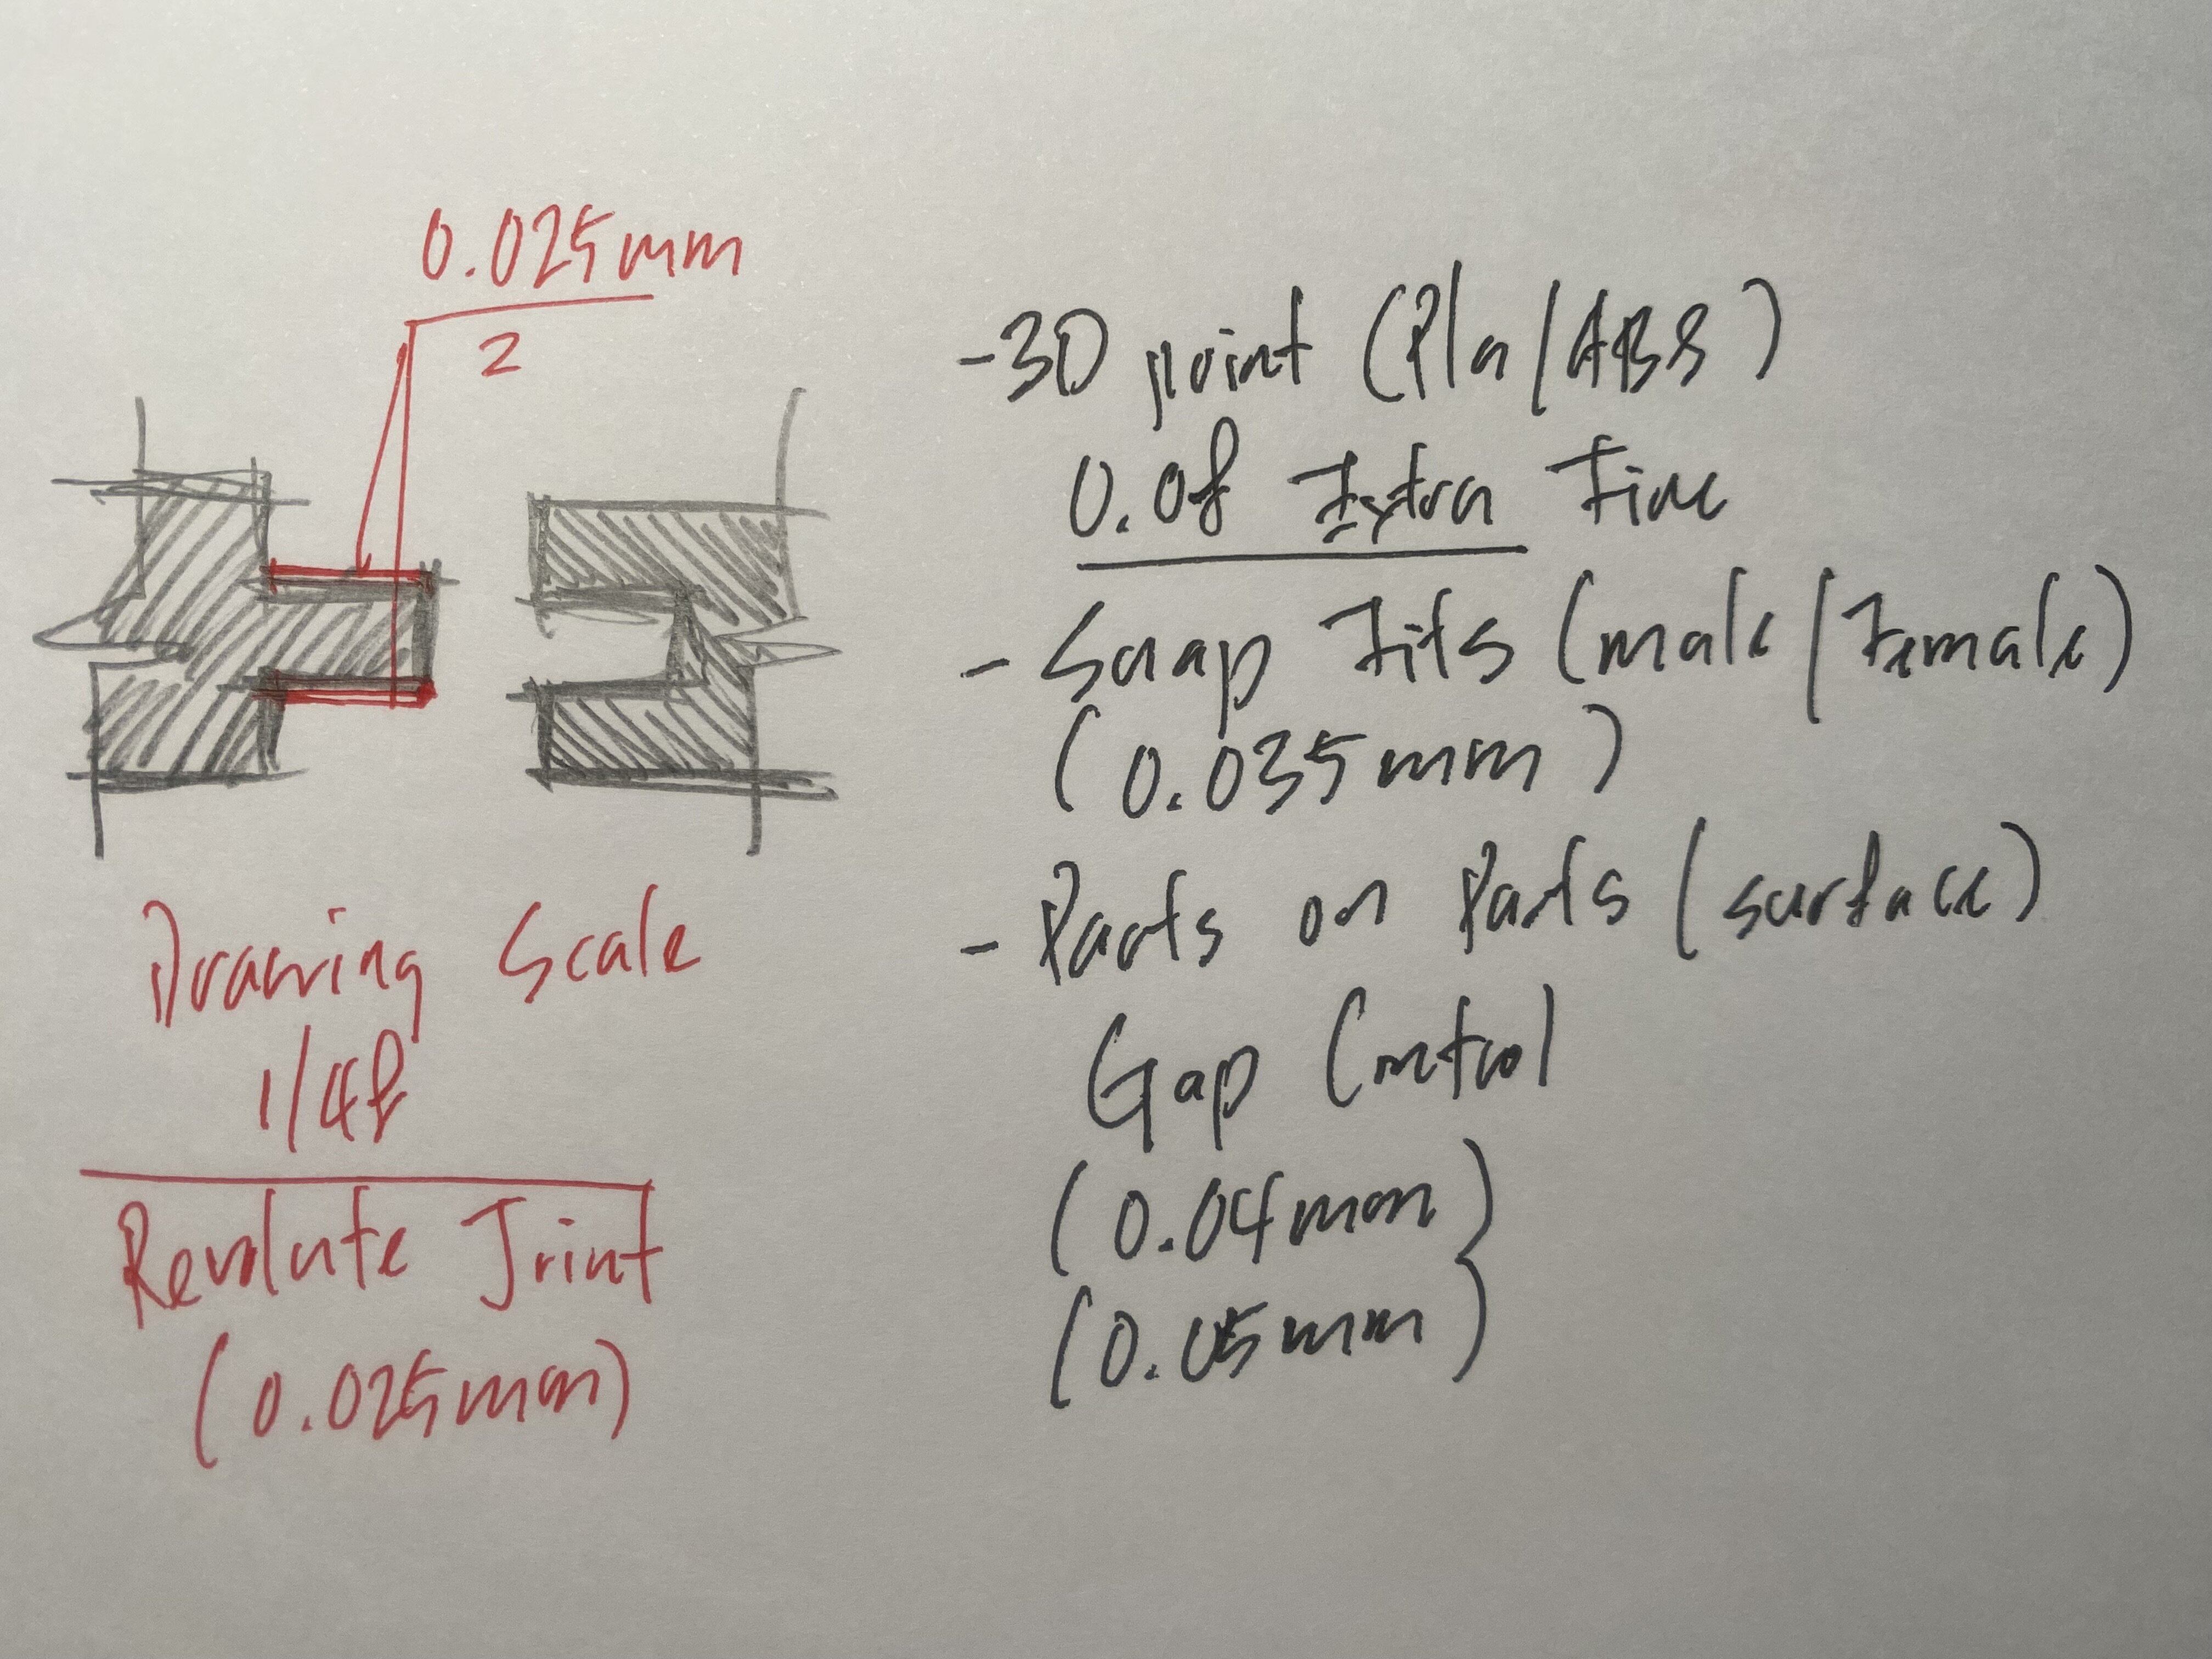 0.025mm
2
Drawing Scale
1/48
Revolute Joint
(0.025mm)
-3D print (Pla/ABS)
0.08 Extra Fine
- Snap Fits (male/Female)
(0.035mm)
- Parts on Parts (surface)
Gap Control
(0.04mm)
(0.05mm)